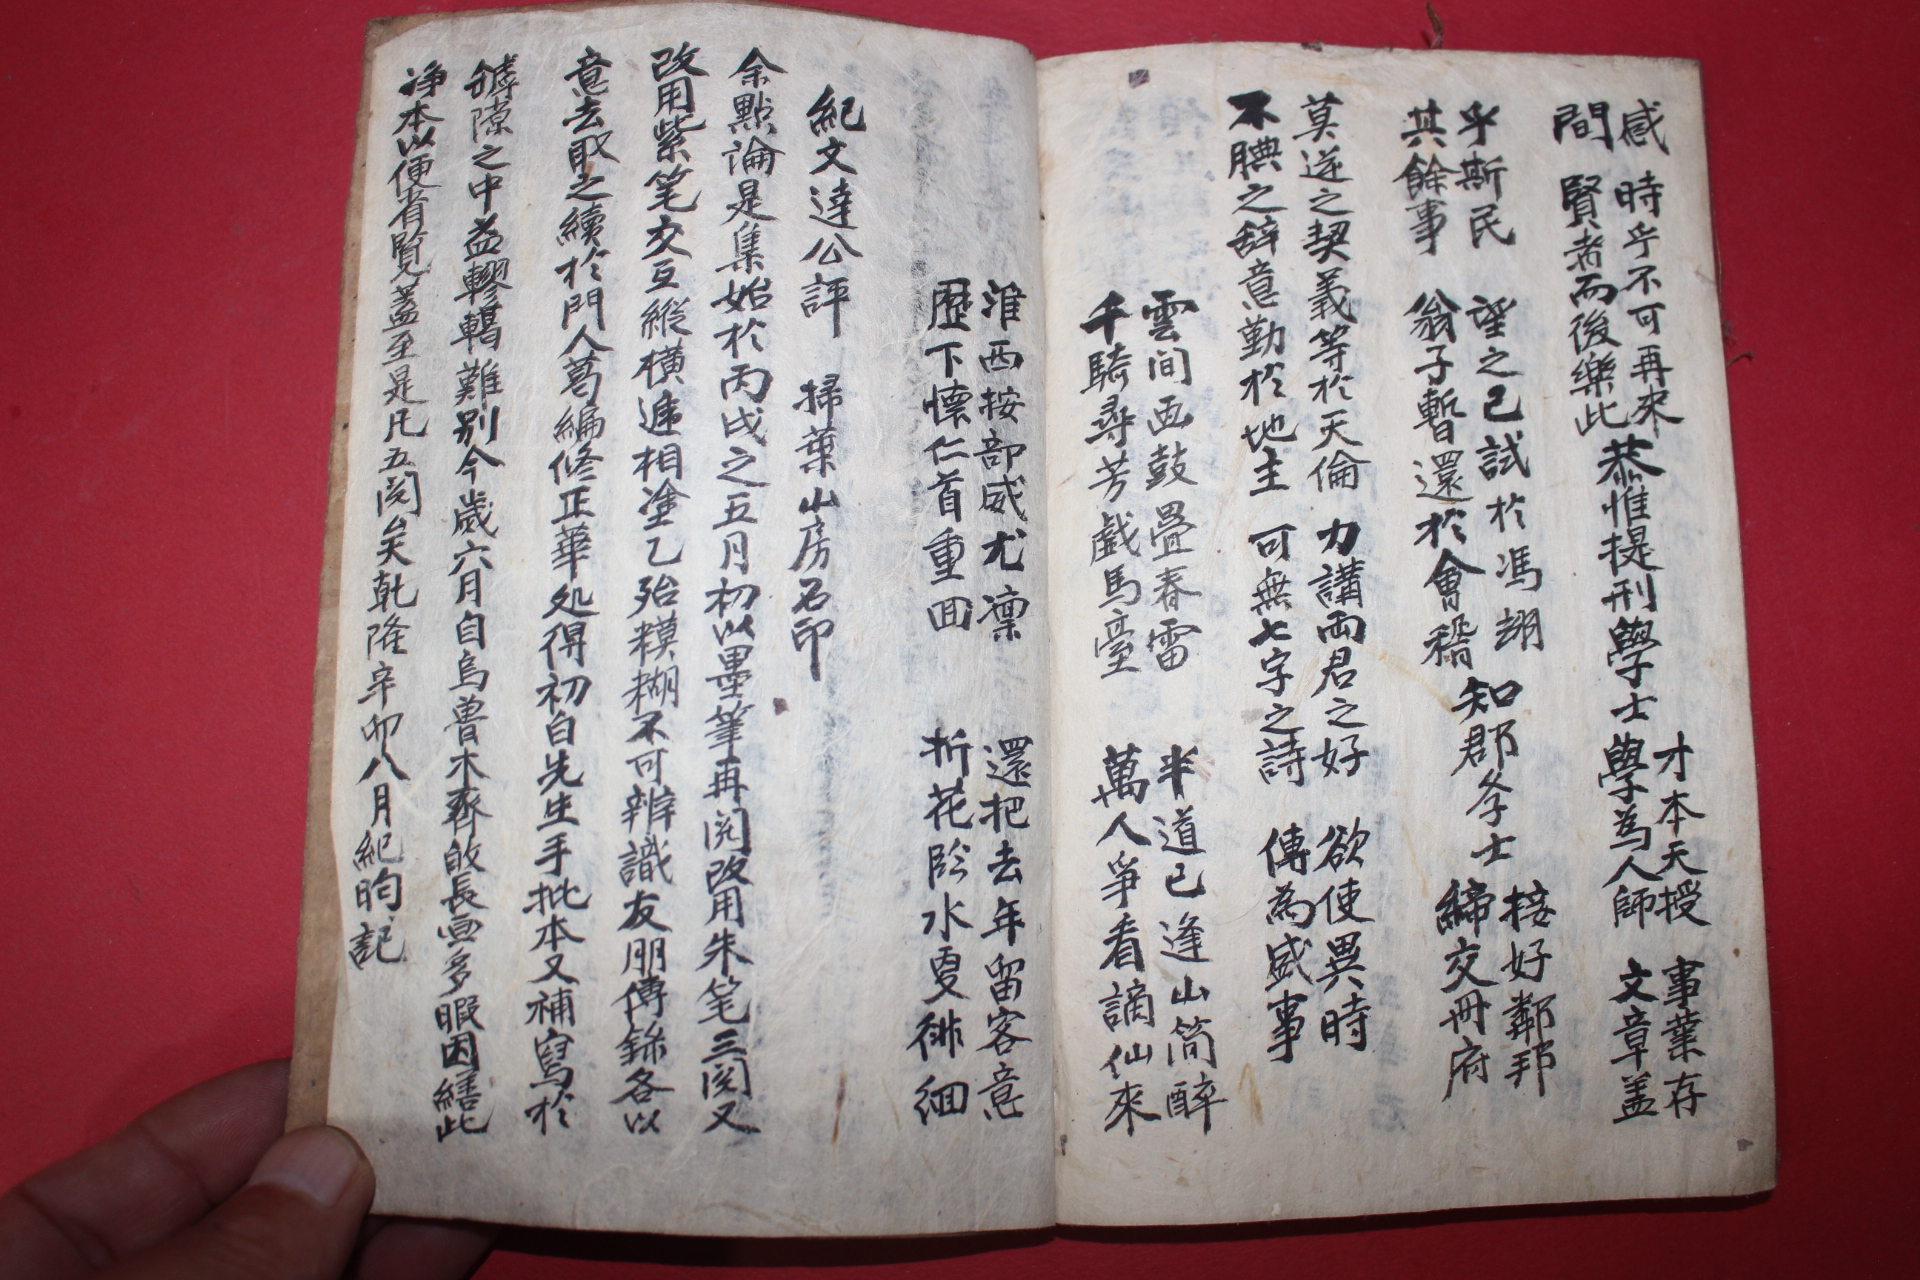 感　時乎不可再來
間　賢者而後樂此
恭惟提刑學士
才本天授　事業存
學為人師　文章蓋
乎斯民　望之已試於馮翊
其餘事　翁子暫還於會稽
知郡孝士
接好鄰邦
締交冊府
莫逆之契義等於天倫　力講兩君之好　欲使異時
不腆之辞意勤於地主　可無七字之詩　傳為盛事
雲间西鼓疊春雷　半道已逢山简醉
千騎尋芳戲馬臺　萬人爭看謫仙來
淮西按部威尤凛　還把去年留客意
歷下懷仁首重囬　折花臨水更徘徊
紀文達公評　掃葉山房石印
余點論是集始於丙戌之五月初以墨筆再阅改用朱笔三阅又
改用紫笔交互縱横遞相塗乙殆糢糊不可辨識友朋傳錄各以
意去取之續於門人葛編修正華処得初白先生手批本又補寫於
罅隙之中益轇轕難别今歲六月自烏魯木齊歸長画多暇因繕此
淨本以便省覧蓋至是凡五阅矣乾隆辛卯八月紀昀記